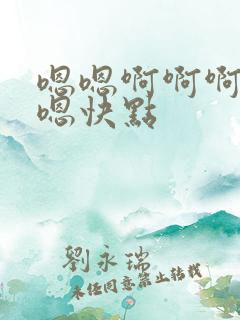 嗯嗯啊啊啊
嗯快點
劉永瑞
未經同意禁止轉載